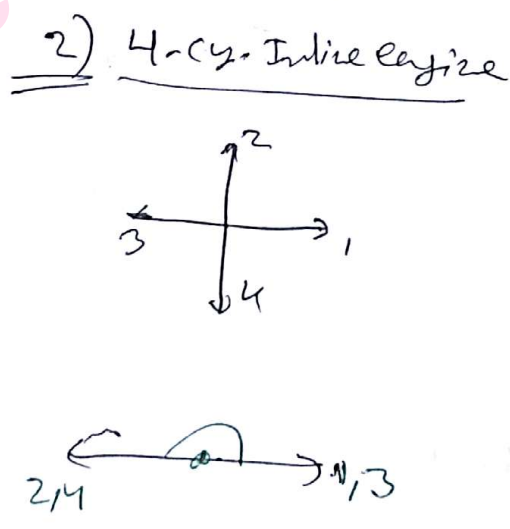 2) 4-Cy. Inline engine
2
3
1
4
2,4
1,3